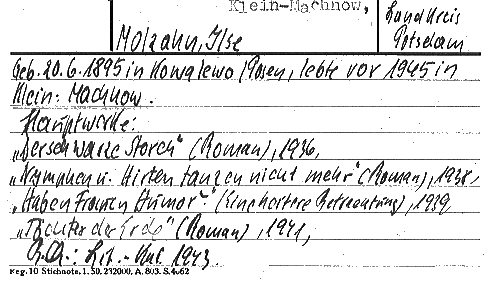 Klein-Machnow,
Landkreis
Potsdam
Molzahn, Ilse
Geb. 20.6.1895 in Kowalewo/Posen, lebte vor 1945 in
Klein-Machnow.
Hauptwerke:
„Der schwarze Storch" (Roman), 1936,
„Nymphen u. Hirten tanzen nicht mehr" (Roman), 1938,
„Haben Frauen Humor" (Eine heitere Betrachtung), 1939,
„Töchter der Erde" (Roman), 1941,
: Lit.-Kal. 1943.
Reg. 10 Stichnote, 1. 50. 232000. A. 803. S. 4.62